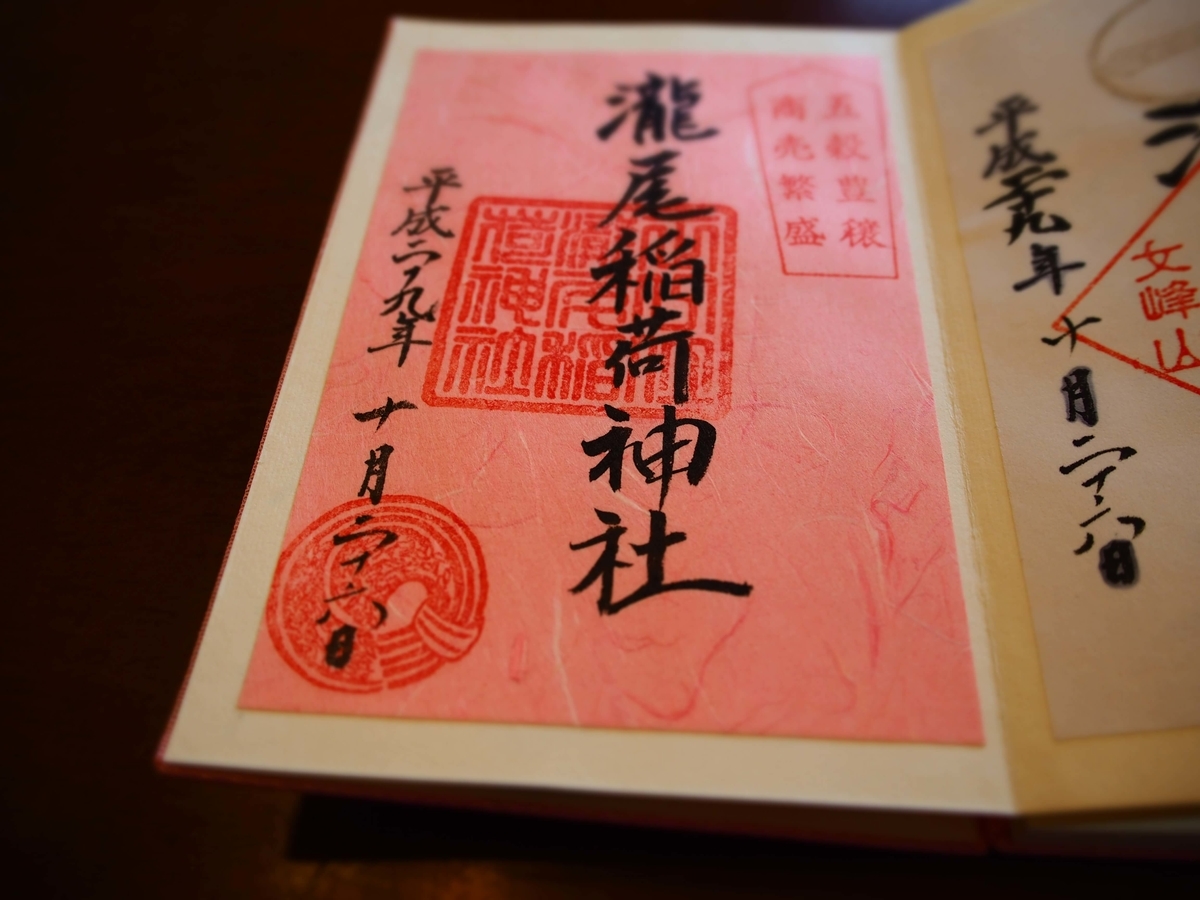 平成二十九年 十月二十六日
文峰山
五穀豊穣
商売繁盛
瀧尾稲荷神社
平成二九年 十月二十六日